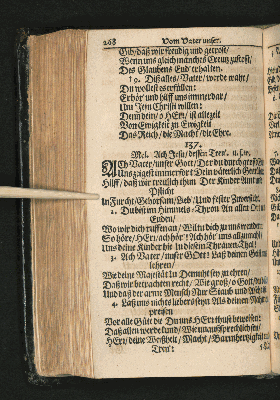 268 Vom Vater unser.
Gib/ daß wir freudig und getrost/
Wenn uns gleich manches Creutz zustost/
Des Glaubens End erhalten.
19. Diß alles/ Vater/ werde wahr/
Du wollest es erfüllen:
Erhör und hilff uns immerdar/
Um JEsu Christi willen:
Denn dein/ o HErr/ ist allezeit
Von Ewigkeit zu Ewigkeit
Das Reich/ die Macht/ die Ehre.
137.
Mel. Ach Jesu/ dessen Treu.
ACh Vater/ unser Gott/ Der du durch
Uns zeigest immerfort Dein väterlich
Hilff/ daß wir treulich thun Der Kinder Amt und
Pflicht
In Furcht/ Gehorsam/ Lieb/ Und fester Zuversicht.
2. Du bist im Himmels-Thron An allen Orten
Enden/
Wo wir dich ruffen an/ Wilst du dich zu uns wenden:
So höre/ HErr/ ach hör! Ach hör uns allzumahl
Uns deine Kinder hie In diesem Thränen-Thal!
3. Ach Vater/ unser GOtt! Laß deinen Geist
lehren/
Wie deine Majestät In Demuth sey zu ehren/
Daß wir betrachten recht/ Wie groß/ o Gott/ du
Und daß der arme Mensch Nur Staub und Asche
4. Laß uns nichts liebers seyn Als deinen Nahm
preisen
Vor alle Güte die Du uns HErr thust beweisen:
Daß allen werde kund/ Wie unaussprechlich sey/
HErr/ deine Weißheit/ Macht/ Barmhertzigkeit
Treu!